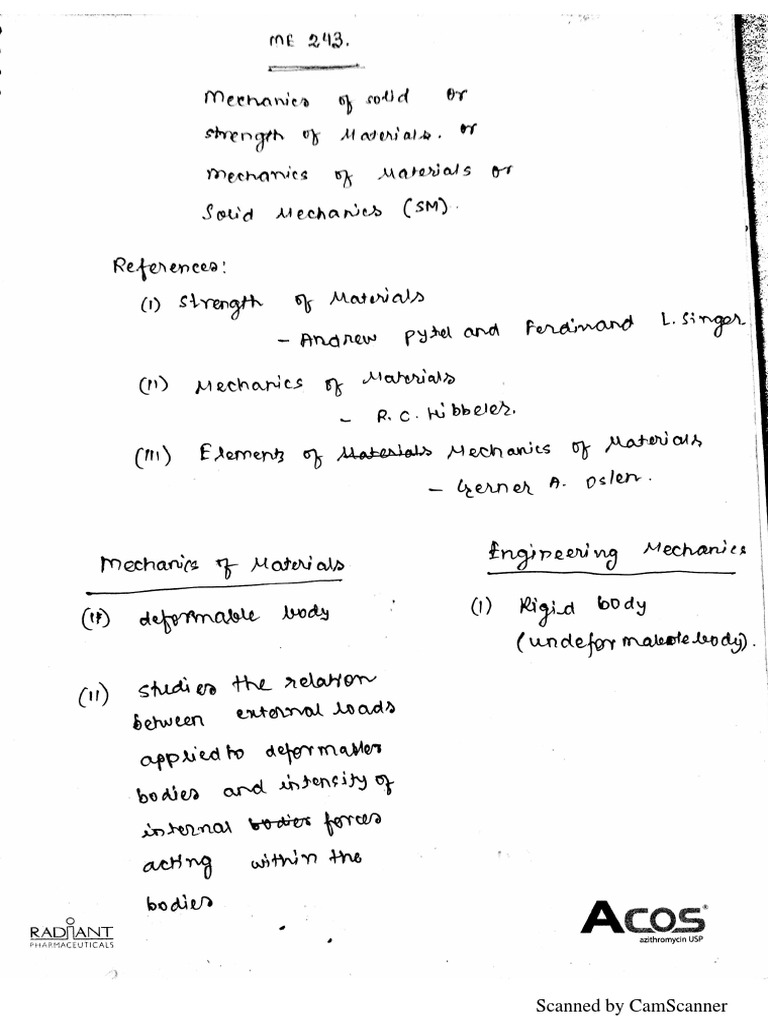 ME 243.
Mechanics of solid or
strength of Materials. or
Mechanics of Materials or
Solid Mechanics (SM).
References:
(I) Strength of Materials
- Andrew Pytel and Ferdinand L. Singer
(II) Mechanics of Materials
- R.C. Hibbeler.
(III) Elements of Materials Mechanics of Materials
- Gerner A. Oslen.
Mechanics of Materials
(I) deformable body
(II) studies the relation
between external loads
applied to deformable
bodies and intensity of
internal bodies forces
acting within the
bodies
Engineering Mechanics
(I) Rigid body
(undeformable body).
RADIANT
PHARMACEUTICALS
ACOS®
azithromycin USP
Scanned by CamScanner